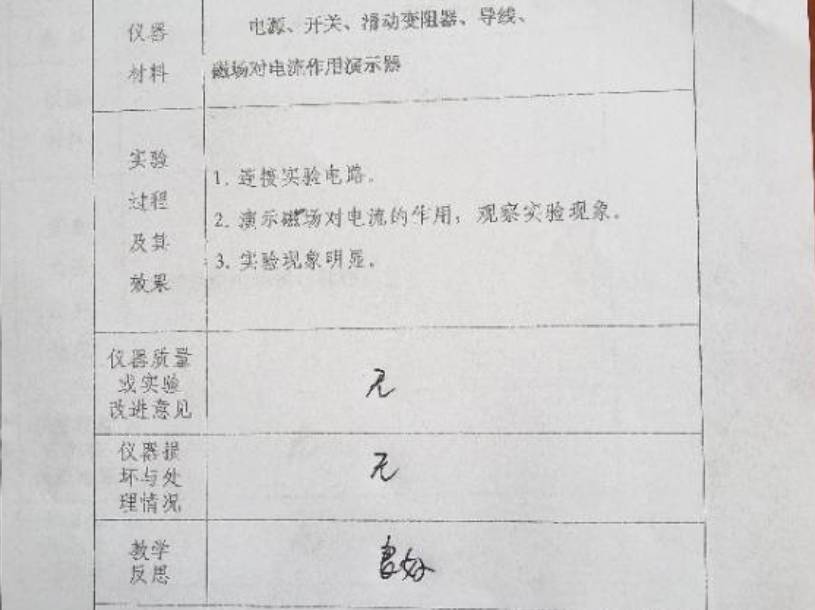 仪器
材料
电源、开关、滑动变阻器、导线、
磁场对电流作用演示器
实验
过程
及其
效果
1. 连接实验电路。
2. 演示磁场对电流的作用，观察实验现象。
3. 实验现象明显。
仪器质量
或实验
改进意见
无
仪器损
坏与处
理情况
无
教学
反思
良好